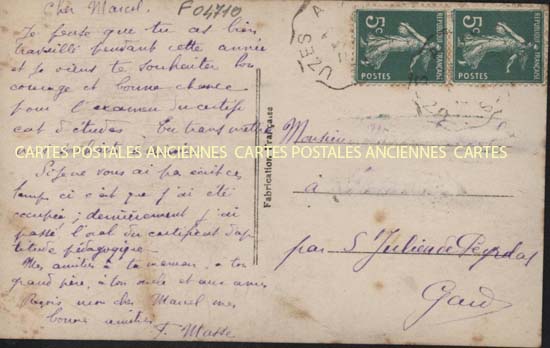 Cher Marcel. F04710
Je pense que tu as bien
travaillé pendant cette année
et je viens te souhaiter bon
courage et bonne chance
pour l'examen du certifi
cat d'études. Tu transmettra
CARTES POSTALES ANCIENNES CARTES POSTALES ANCIENNES CARTES
Si je ne vous ai pas écrit ces
temps ci c'est que j'ai été
occupée; dernièrement j'ai
passé l'oral du certificat d'ap
titude pédagogique.
Mes amitiés à ta maman, à ton
grand père, à ton oncle et aux amis
Reçois mon cher Marcel mes
bonne amitiés
F. Masse
Fabrication Française
UZES
5c REPUBLIQUE FRANÇAISE POSTES
5c REPUBLIQUE FRANÇAISE POSTES
Monsieur
à
par St Julien de Peyrolas
Gard